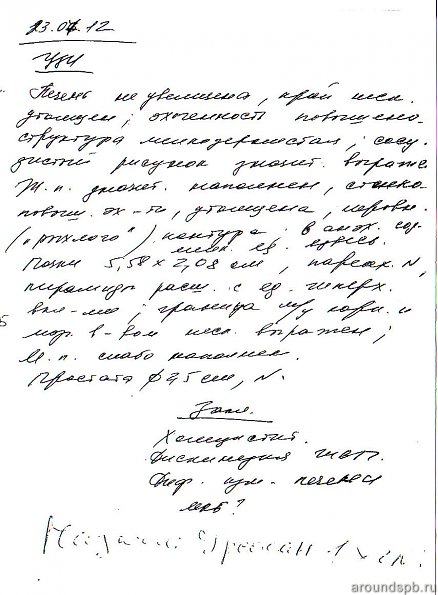 23.01.12
УЗИ
Печень не увеличена, край несл.
утолщен; эхогенность повышено-
структура мелкозернистая; сосу-
дистый рисунок значит. выражен.
Ж.п. значит. наполнен, стенка
повыш. эх-ти, утолщена, неровн.
("рыхлого") контура; в анэх. сод-
мелк. ед. взвесь.
Почки 5,58 х 2,08 см, паренх. N,
пирамиды расш. с ед. гиперх.
вкл-ми; граница м/у корк. и
мозг. в-вом несл. выражен;
М.п. слабо наполнен.
Простата ф 2,5 см, N.
Закл.
Холецистит.
Дискинезия ЖВП.
Диф. изм. печени
МКБ?
1
aroundspb.ru